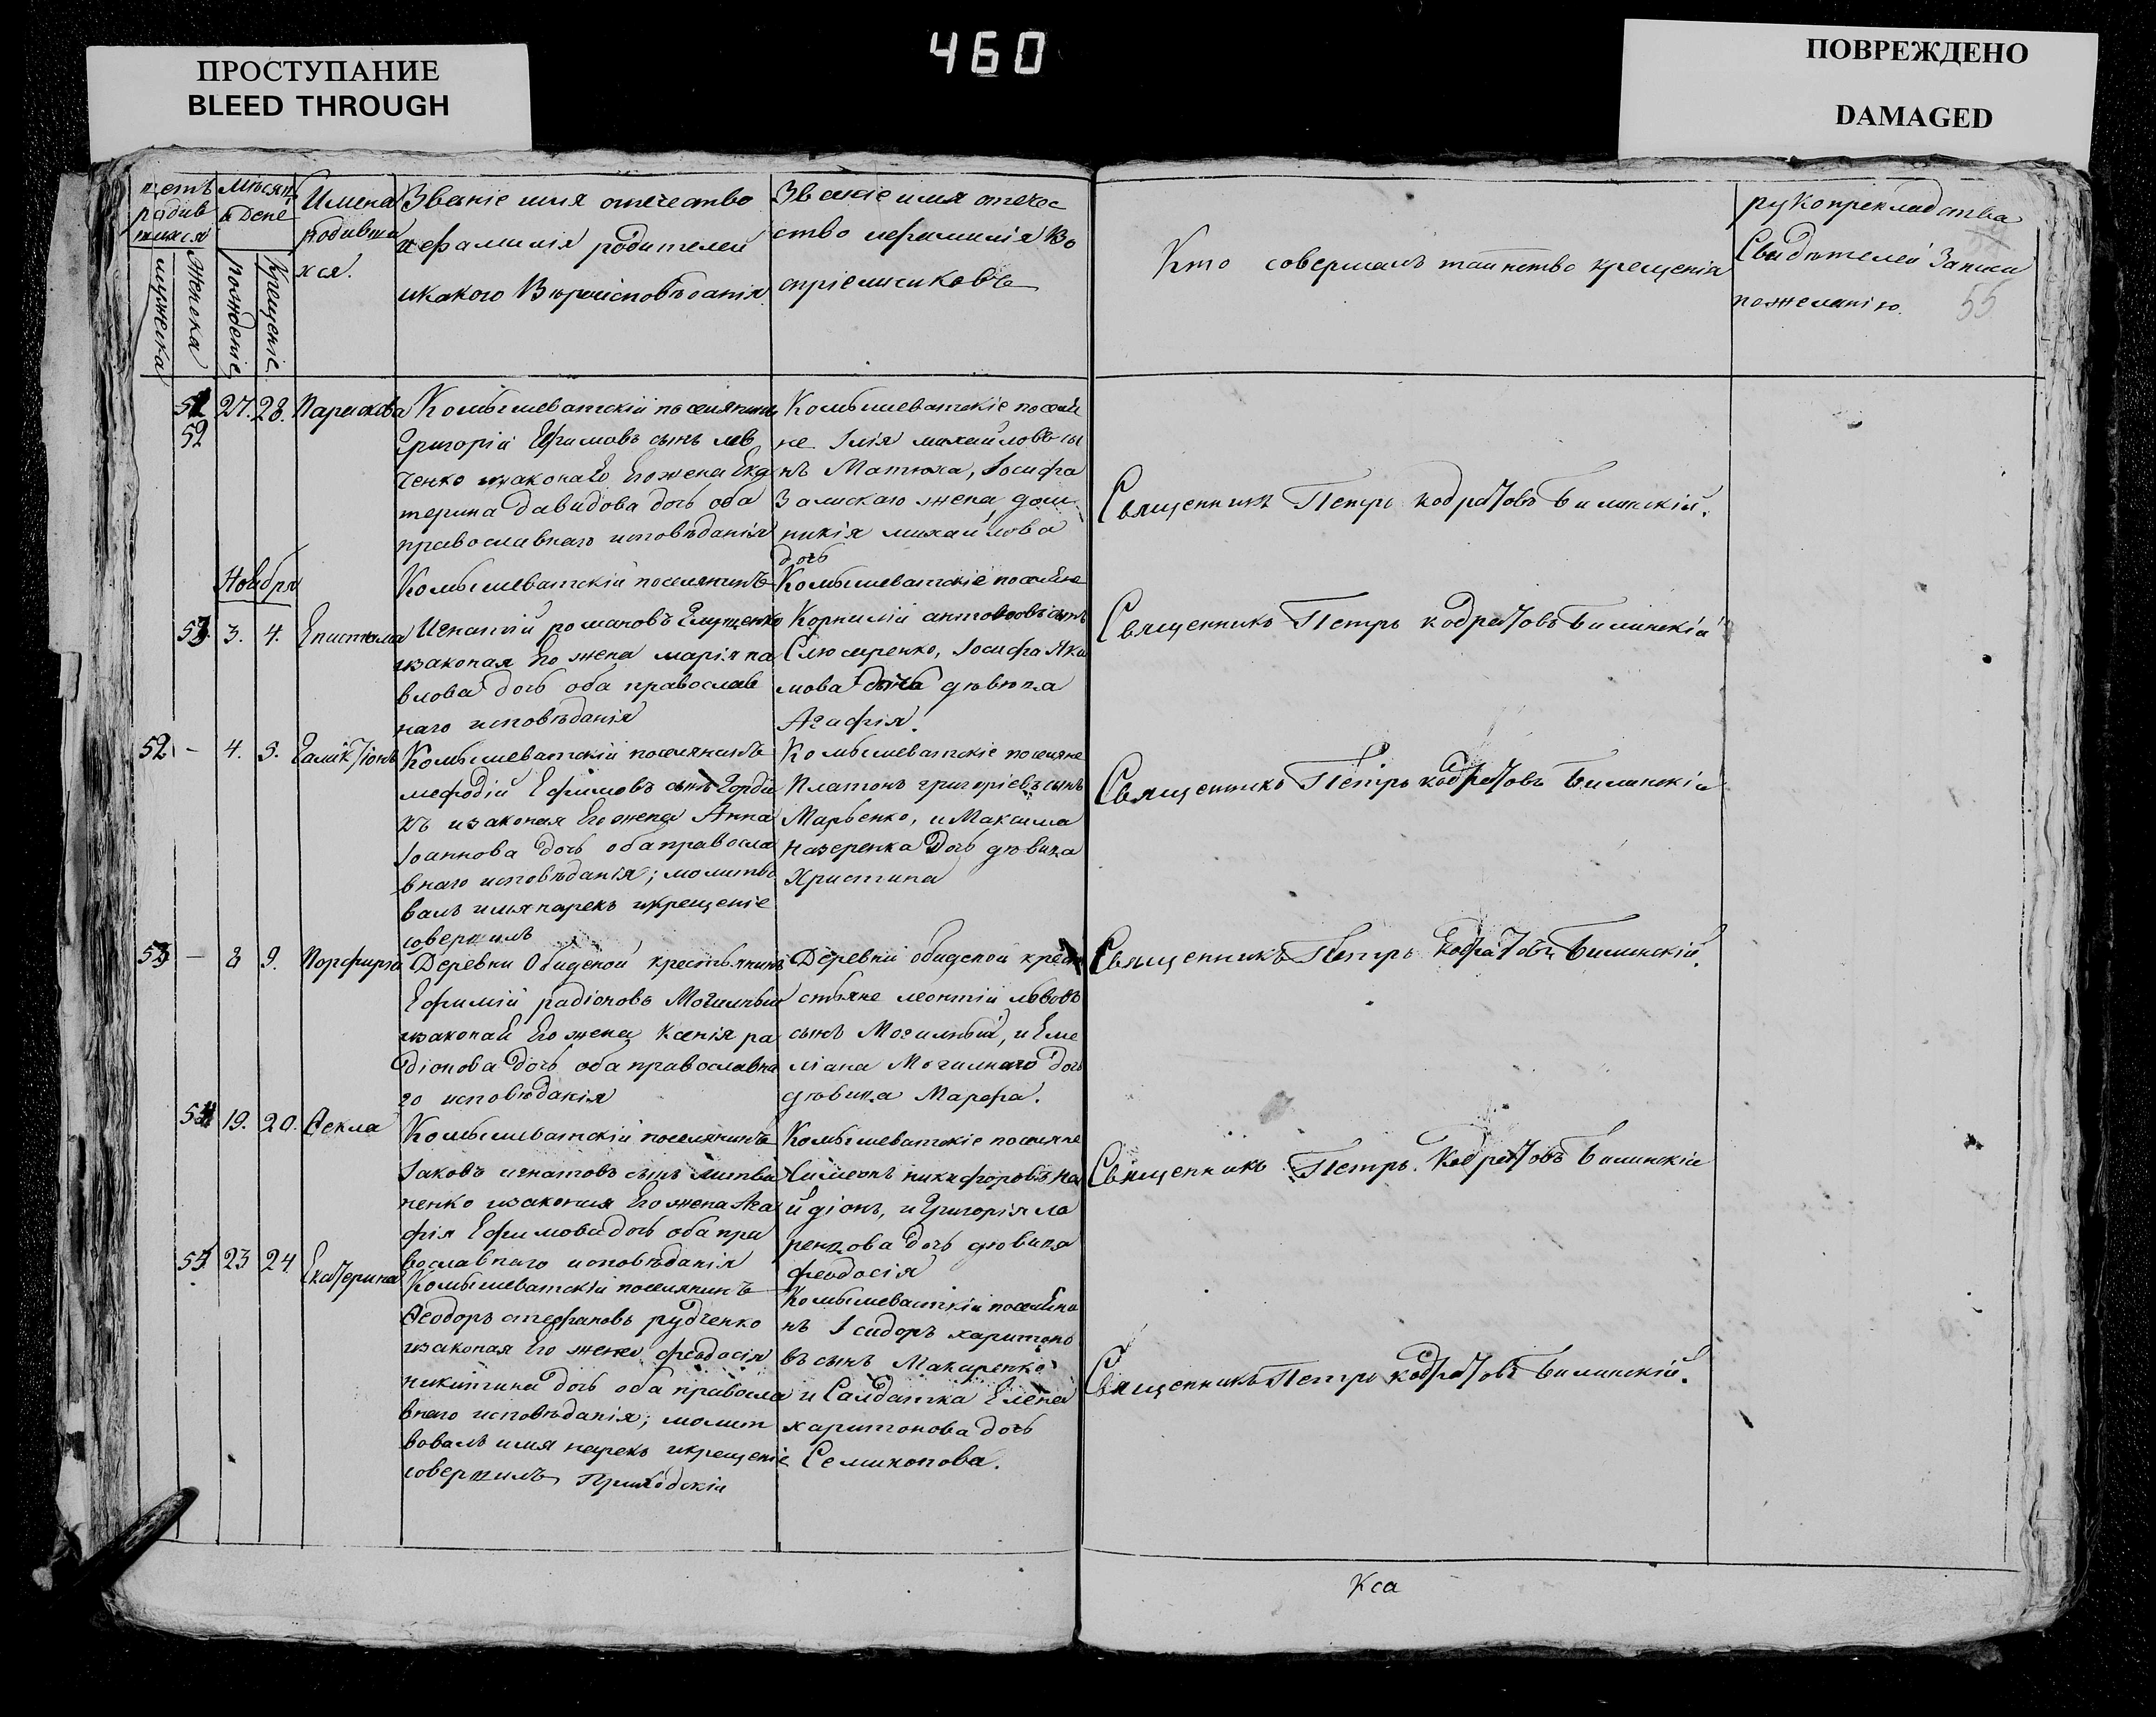 460
ПРОСТУПАНИЕ
BLEED THROUGH
ПОВРЕЖДЕНО
DAMAGED
щетъ родив шихся
мужеска
женска
Мѣсяцъ и день
рожденіе
крещеніе
Имена
родивши
хся.
Званіе имя отечество
и фамилія родителей
и какого Вѣроисповѣданія
Званіе имя отечес
ство и фамилія Во
спріемниковъ
Кто совершалъ таинство крещенія
рукоприкладства
Свидѣтелей Записи
по желанію.
55
52
27. 28. Параскева
Комышеватскій поселянинъ
Григорій Ефимовъ сынъ лев
ченко изаконаѣ Его жена Ека
терина Давидова дочь оба
православнаго исповѣданія
Комышеватскіе поселя
не Илія михайловъ сы
нъ Матюха, Іосифа
жена дом
никія михайлова
дочь
Священникъ Петръ кодратовъ Билинскій.
Ноября
53 3. 4. Епистима
Комышеватскій поселянинъ
Игнатій романовъ
изаконая Его жена марія па
влова дочь оба православ
наго исповѣданія
Комышеватскіе поселяне
Корнилій сынъ
Слюсаренко, Іосифа Яки
мова дочь дѣвица
Агафія.
Священникъ Петръ кодратовъ Билинскій
52 – 4. 5. Галактіонъ
Комышеватскій поселянинъ
мефодій Ефимовъ сынъ Горді
изаконая Его жена Анна
Іоаннова дочь оба правосла
внаго исповѣданія; молитво
валъ имя нарекъ и крещеніе
совершилъ
Комышеватскіе поселяне
Платонъ григоріевъ сынъ
Марченко, и Максима
назеренка дочь дѣвица
Христина
Священникъ Петръ кодратовъ Билинскій
53 – 8 9. Порфирій
Деревни Обидной крестьянинъ
Ефимій радіоновъ Могильный
изаконаѣ Его жена Ксенія ра
діонова дочь оба православна
го исповѣданія
Деревни обидной кре
стьяне леонтій львовъ
сынъ Могильный, и Еме
ліана Могилнаго дочь
дѣвица Марфа.
Священникъ Петръ кодратовъ Билинскій.
54 19. 20. Ѳекла
Комышеватскій поселянинъ
Іаковъ игнатовъ сынъ литви
ненко изаконая Его жена Ага
фія Ефимова дочь оба пра
вославнаго исповѣданія
Комышеватскіе поселяне
Симеонъ никифоровъ На
йдіонъ, и Григорія ла
ренцова дочь дѣвица
феодосія
Священникъ Петръ Кодратовъ Билинскій
55 23 24 Екатерина
Комышеватскій поселянинъ
Ѳеодоръ стефановъ рудченко
изаконая Его жена феодосія
никитина дочь оба правосла
внаго исповѣданія; молит
вовалъ имя нарекъ и крещеніе
совершилъ Приходскій
Комышеватскій поселяни
нъ Ісидоръ харитоно
въ сынъ Макаренко
и Салдатка Елена
харитонова дочь
Семикопова.
Священникъ Петръ кодратовъ Билинскій.
Кса